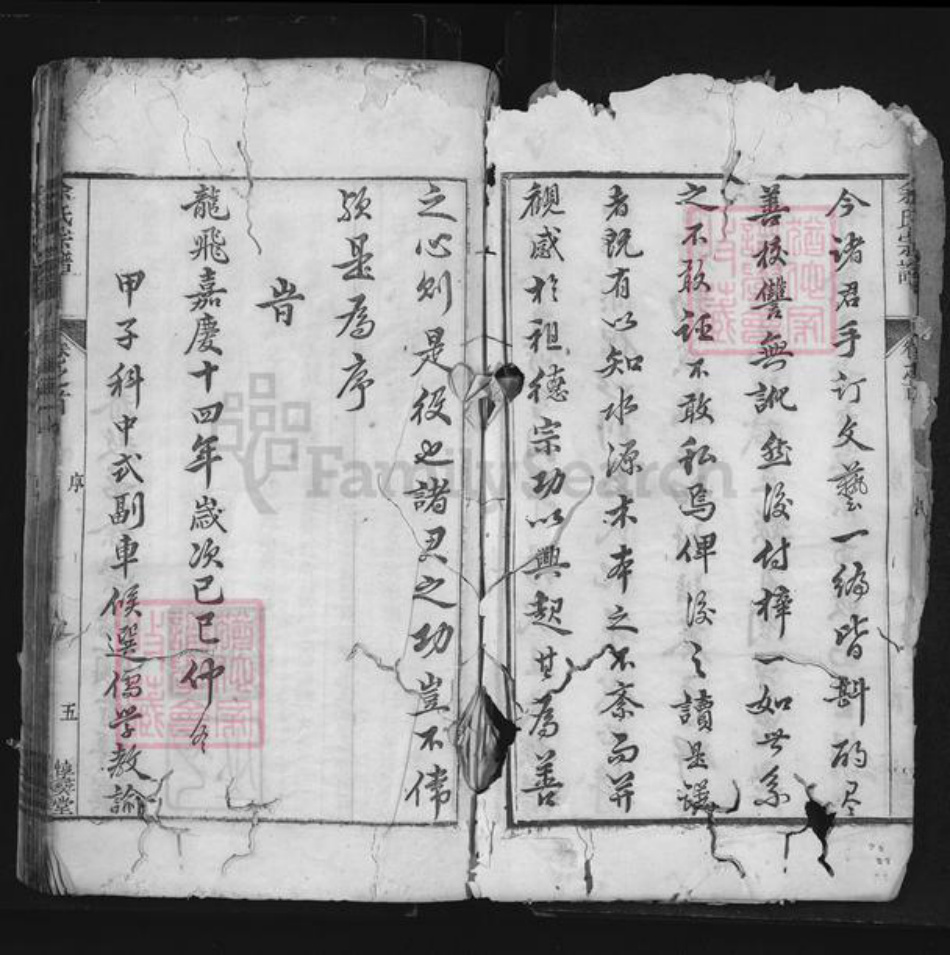 今諸君手訂文藝一編皆斟酌尽
善校讐無訛然後付梓一如世系
之不敢誣不敢私焉俾後之讀是譜
者既有以知水源木本之不紊而并
觀感於祖德宗功以興起其為善
之心則是役也諸君之功豈不偉
歟是為序
旹
龍飛嘉慶十四年歲次己巳仲冬
甲子科中式副車候選儒學教諭
余氏宗譜
序
五
余氏宗譜
FamilySearch